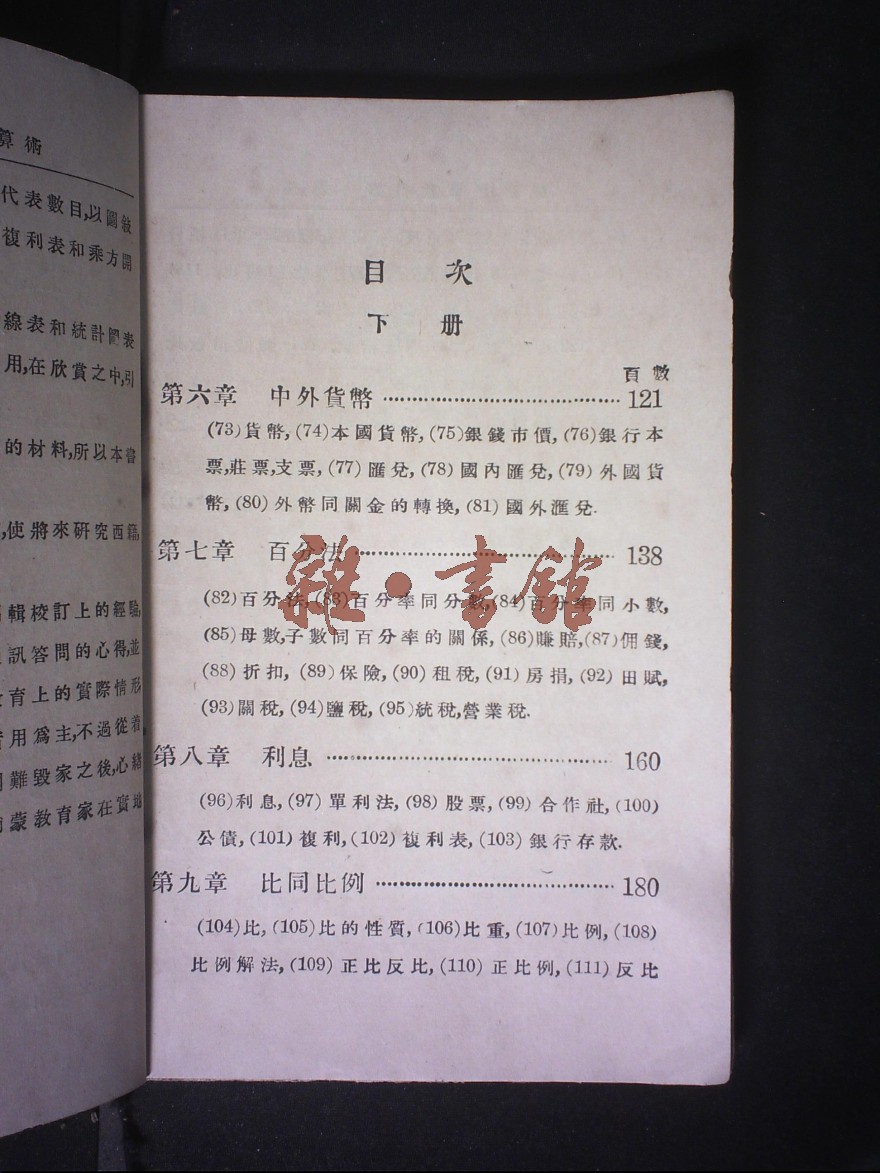 算術
代表數目,以圖敍
複利表和乘方開
線表和統計圖表
用,在欣賞之中,引
的材料,所以本書
,使將來研究西籍,
輯校訂上的經驗,
訊答問的心得,並
育上的實際情形
用爲主,不過從着
難毀家之後,心緒
蒙教育家在實地
目 次
下 册
頁數
第六章 中外貨幣 ········ 121
(73)貨幣,(74)本國貨幣,(75)銀錢市價,(76)銀行本
票,莊票,支票,(77)匯兌,(78)國內匯兌,(79)外國貨
幣,(80)外幣同關金的轉換,(81)國外滙兌.
第七章 百分法 ········ 138
(82)百分法,(83)百分率同分數,(84)百分率同小數,
(85)母數,子數同百分率的關係,(86)賺賠,(87)佣錢,
(88)折扣,(89)保險,(90)租稅,(91)房捐,(92)田賦,
(93)關稅,(94)鹽稅,(95)統稅,營業稅.
第八章 利息 ········ 160
(96)利息,(97)單利法,(98)股票,(99)合作社,(100)
公債,(101)複利,(102)複利表,(103)銀行存款.
第九章 比同比例 ········ 180
(104)比,(105)比的性質,(106)比重,(107)比例,(108)
比例解法,(109)正比反比,(110)正比例,(111)反比
雜·書館